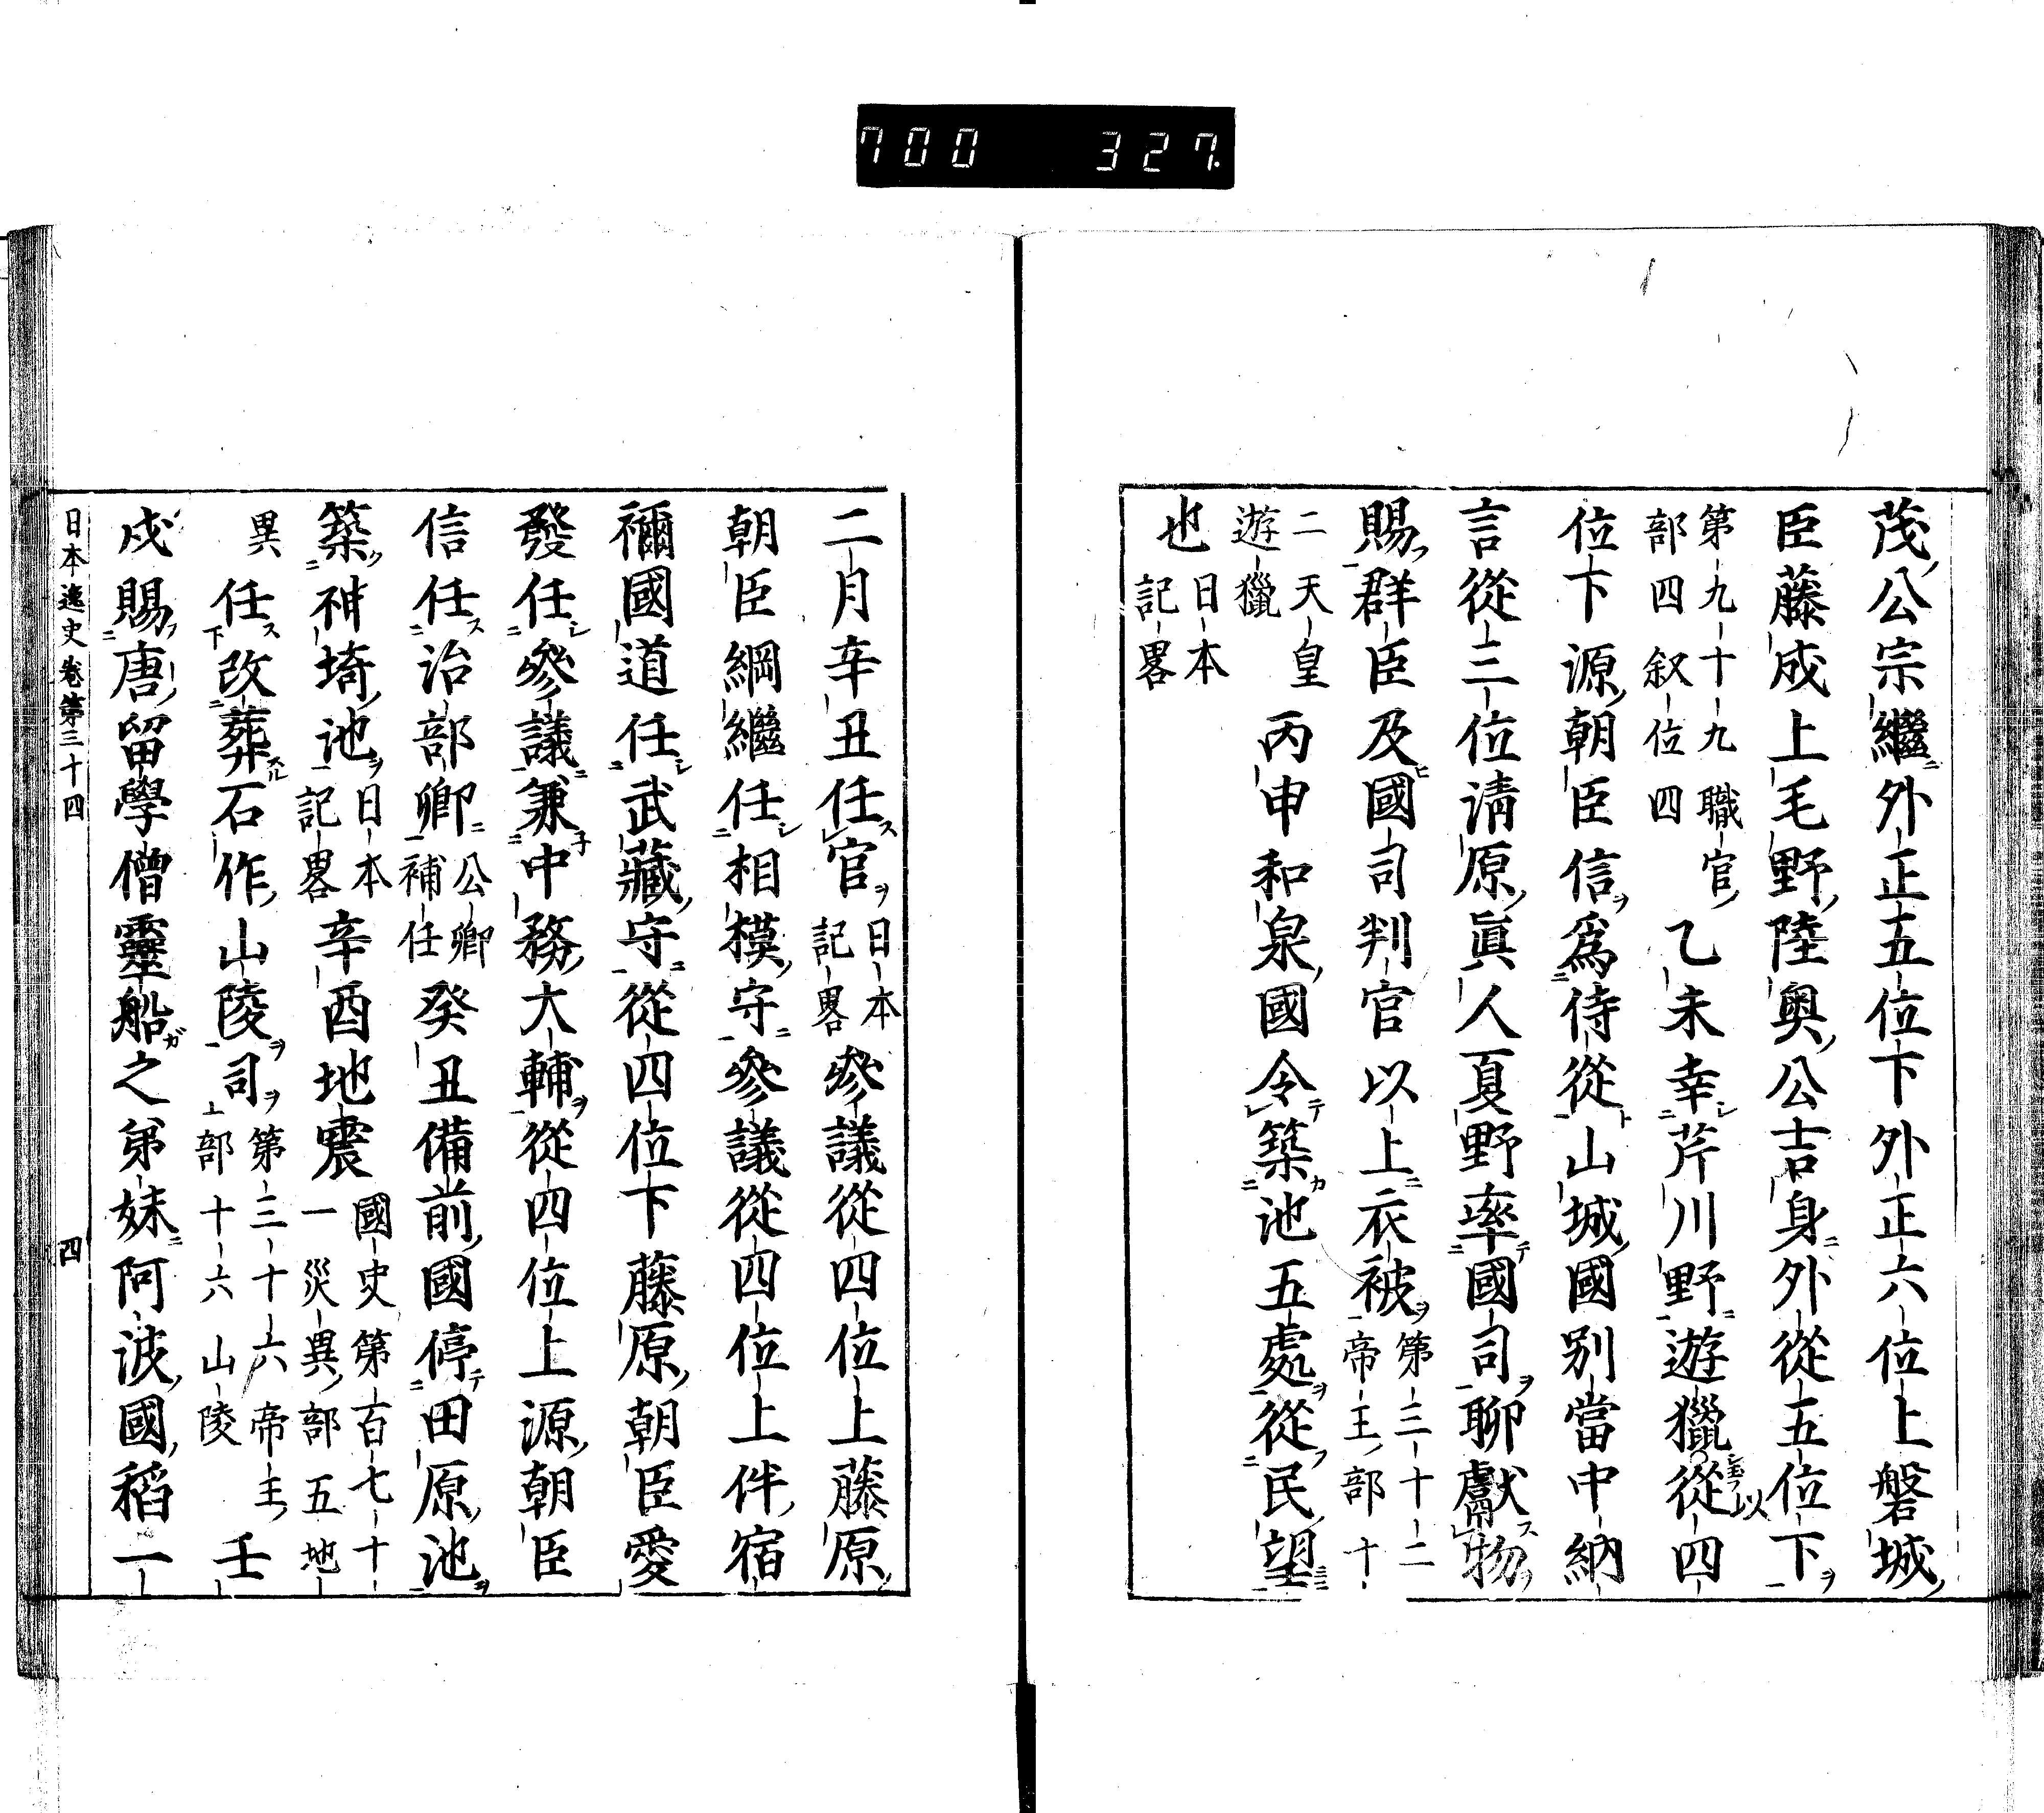 700 327
茂公宗繼外正五位下外正六位上磐城
臣藤成上毛野陸奥公吉身外從五位下
第九十九職官
部四叙位四
乙未幸芹川野遊獵以從四
位下源朝臣信爲侍從山城國別當中納
言從三位淸原眞人夏野率國司聊獻物
賜群臣及國司判官以上衣被
第三十二
帝王部十
二天皇
遊獵
丙申和泉國令築池五處從民望
也
日本
記畧
二月辛丑任官
日本
記畧
參議從四位上藤原
朝臣綱繼任相模守參議從四位上伴宿
禰國道任武藏守從四位下藤原朝臣愛
發任參議兼中務大輔從四位上源朝臣
信任治部卿
公卿
補任
癸丑備前國停田原池
築神埼池
日本
記畧
辛酉地震
國史第百七十
一災異部五地
異
任改葬石作山陵司
第三十六帝王
部十六山陵
壬
戌賜唐留學僧靈船之弟妹阿波國稻一
日本逸史卷第三十四 四